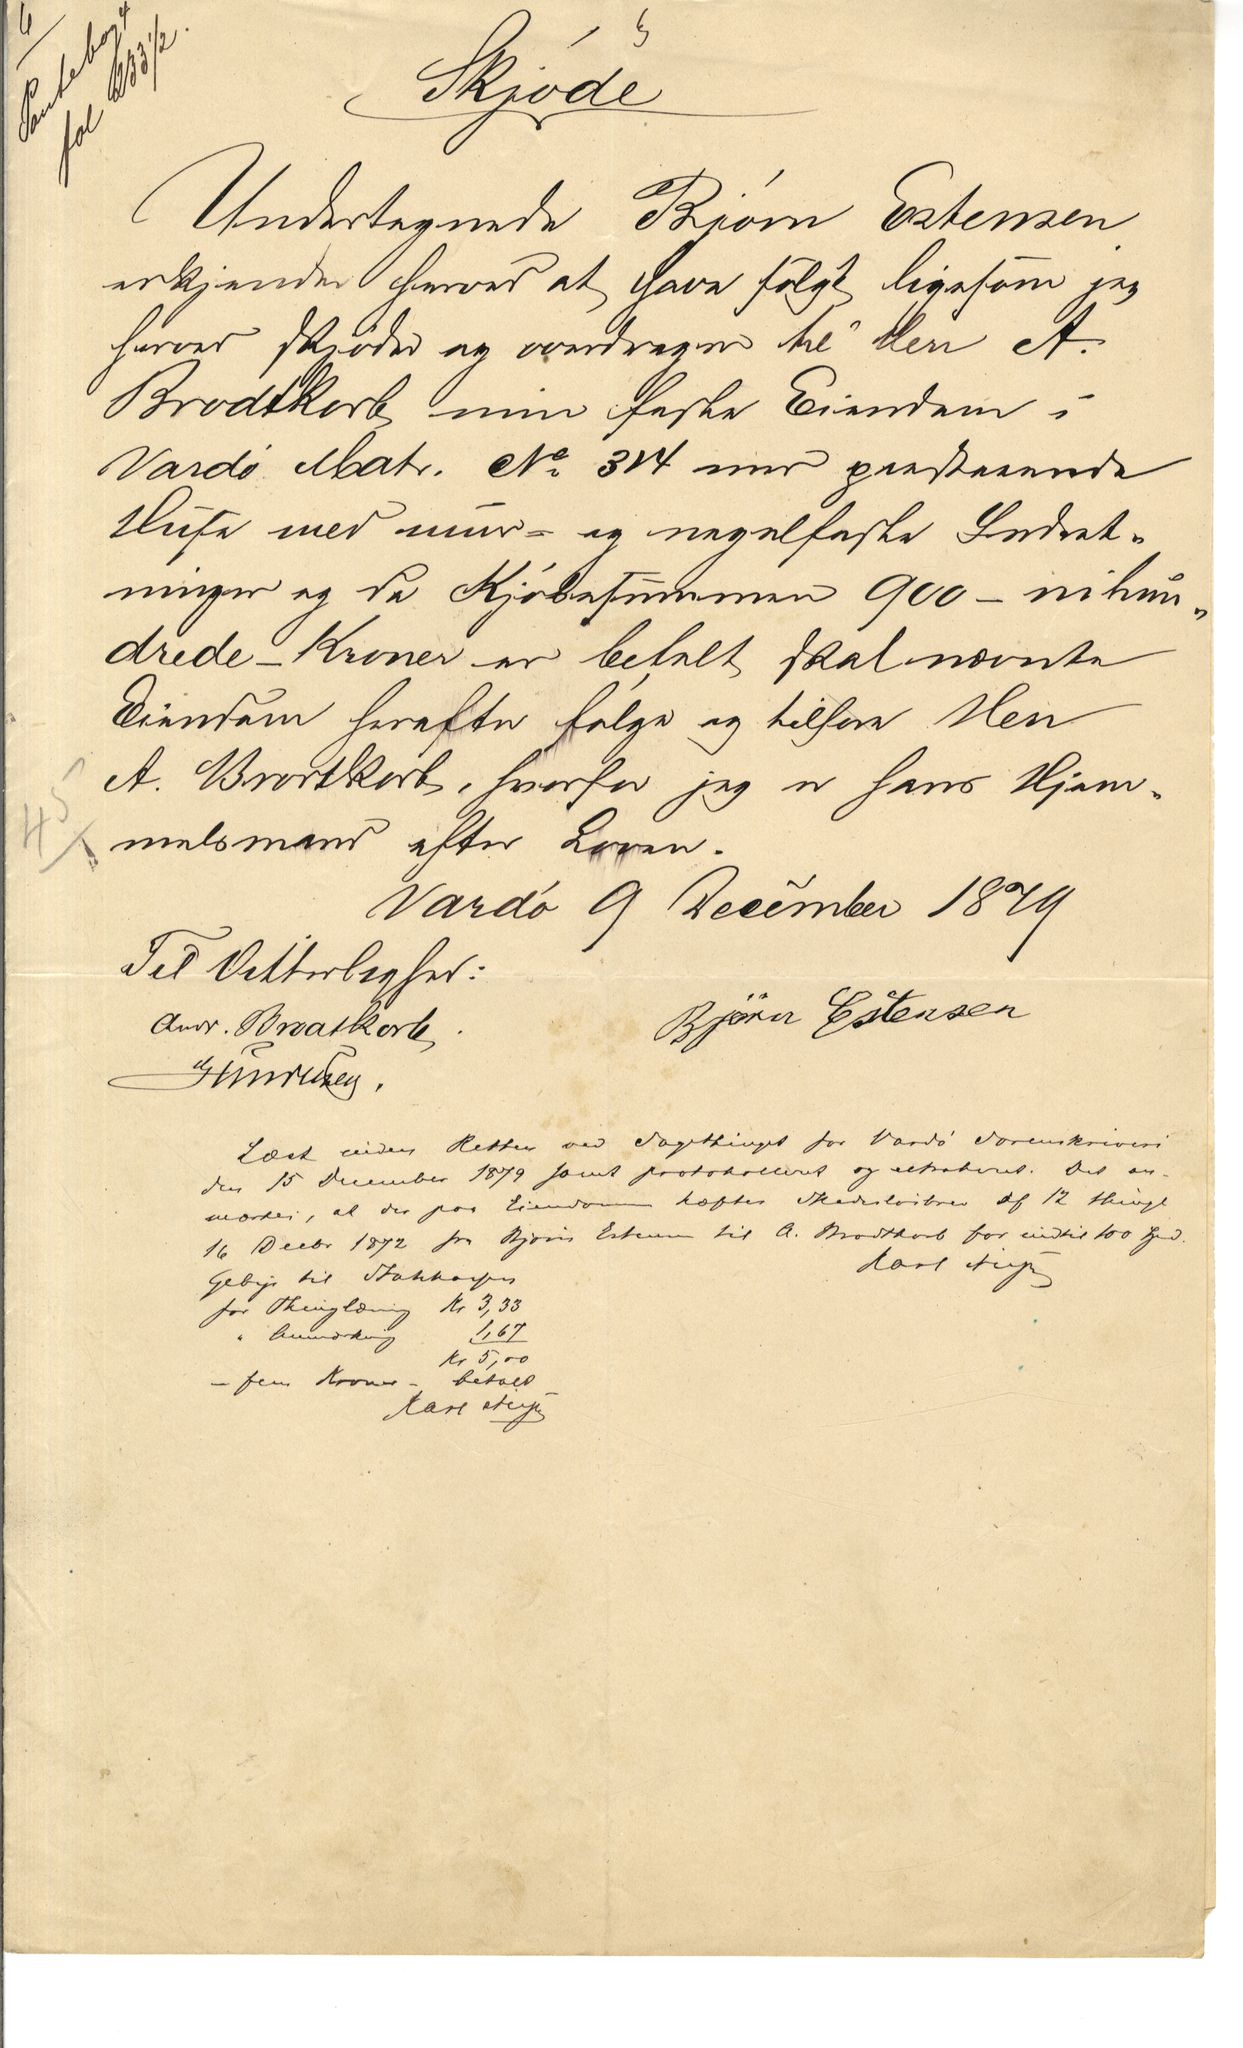 6
Pantebog 4
fol 233 1/2.
Skjøde
Undertegnede Bjørn Estensen
erkjender herved at have solgt ligesom jeg
herved skjøder og overdrager til Herr A.
Brodtkorb min faste Eiendom i
Vardø Matr. No 314 med paastaaende
Huse med muur- og nagelfaste Indret-
ninger og da Kjøbesummen 900 - nihun-
drede - Kroner er betalt skal nævnte
Eiendom herefter følge og tilhøre Herr
A. Brodtkorb, hvorfor jeg er hans Hjem-
melsmand efter Loven.
Vardø 9 December 1879
Til Vitterlighed:
Andr. Brodtkorb.
Björn Estensen
Læst inden Retten ved Sagethinget for Vardø Sorenskriveri
den 15 December 1879 samt protokolleret og extraheret. Det an-
mærkes, at der paa Eiendommen hæfter Skadesløsbrev af 12 thingl
16 Decbr 1872 fra Bjørn Estensen til A. Brodtkorb for indtil 100 Spd.
Karl
Gebyr til Statskassen
for Thinglæsning Kr 3,33
" Anmærkning 1,67
Kr 5,00
- fem Kroner - betalt
Karl